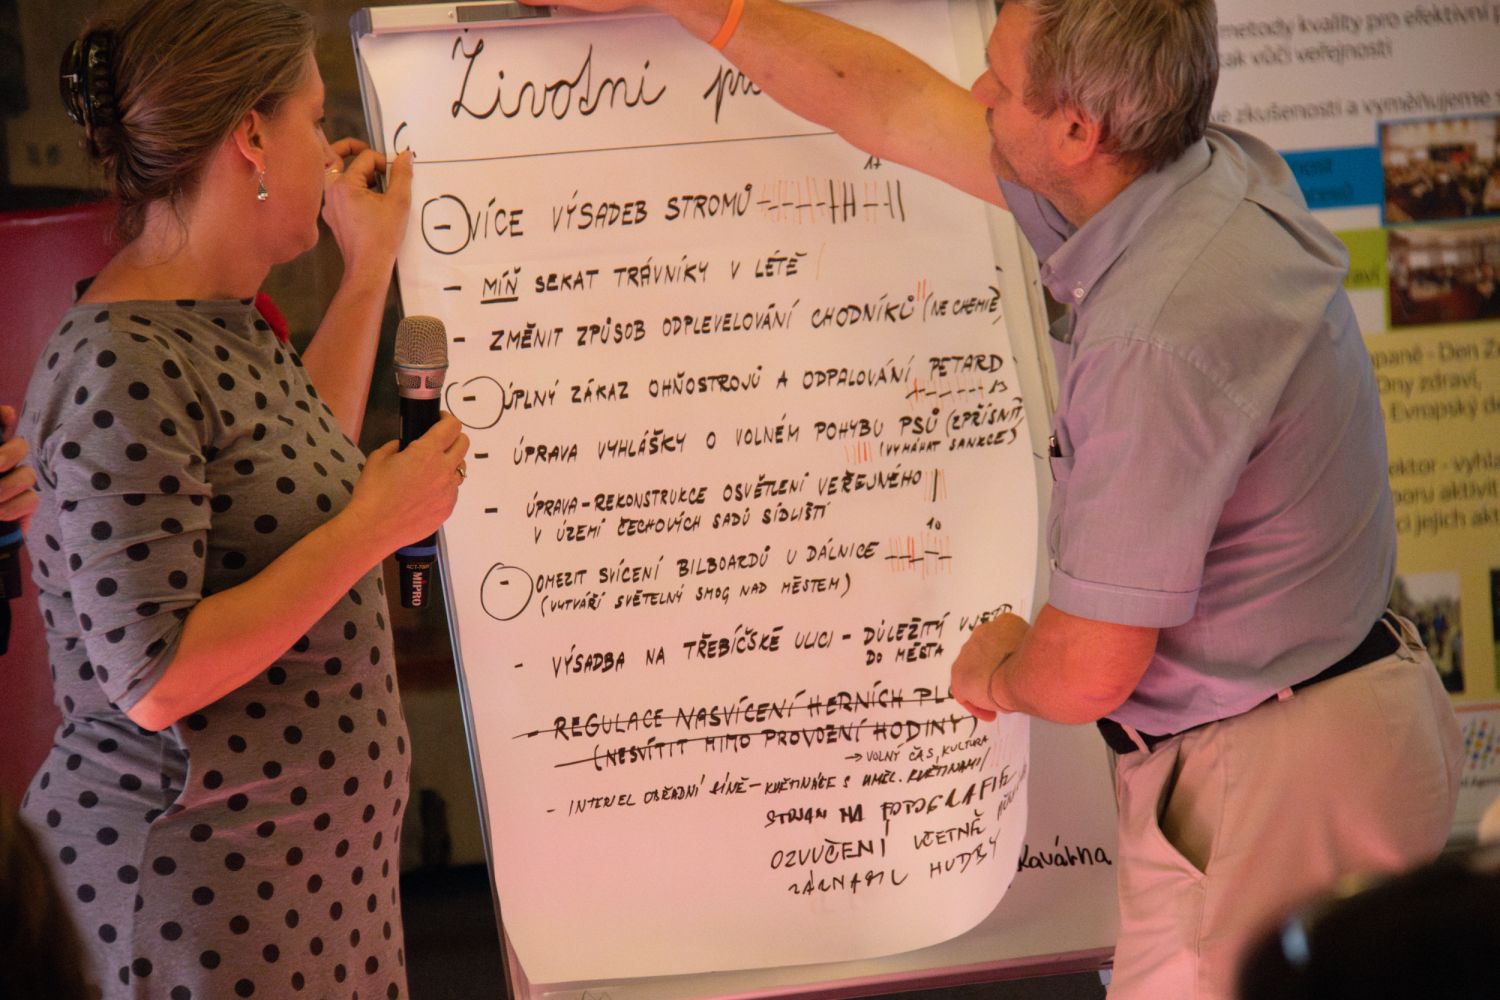 Životní
17
- VÍCE VÝSADEB STROMŮ
- MÍŇ SEKAT TRÁVNÍKY V LÉTĚ
- ZMĚNIT ZPŮSOB ODPLEVELOVÁNÍ CHODNÍKŮ (NE CHEMIE)
- ÚPLNÝ ZÁKAZ OHŇOSTROJŮ A ODPALOVÁNÍ PETARD
13
- ÚPRAVA VYHLÁŠKY O VOLNÉM POHYBU PSŮ (ZPŘÍSNIT,
(VYMÁHAT SANKCE)
- ÚPRAVA-REKONSTRUKCE OSVĚTLENÍ VEŘEJNÉHO
V ÚZEMÍ ČECHOVÝCH SADŮ SÍDLIŠTÍ
10
- OMEZIT SVÍCENÍ BILBOARDŮ U DÁLNICE
(VYTVÁŘÍ SVĚTELNÝ SMOG NAD MĚSTEM)
- VÝSADBA NA TŘEBÍČSKÉ ULICI - DŮLEŽITÝ VJEZD
DO MĚSTA
- REGULACE NASVÍCENÍ HERNÍCH
(NESVÍTIT MIMO PROVOZNÍ HODINY)
→ VOLNÝ ČAS, KULTURA
- INTERIEL OBŘADNÍ SÍNĚ - KVĚTINÁČE S UMĚL. KVĚTINAMI
STOJAN NA FOTOGRAFIE
OZVUČENÍ VČETNĚ
HUDBY
Kavárna
ACT-700H
MIPRO
metody kvality pro efektivní
vůči veřejnosti
zkušenosti a vyměňujeme
- Den
Dny zdraví,
Evropský
- vyhla
aktivit
jejich